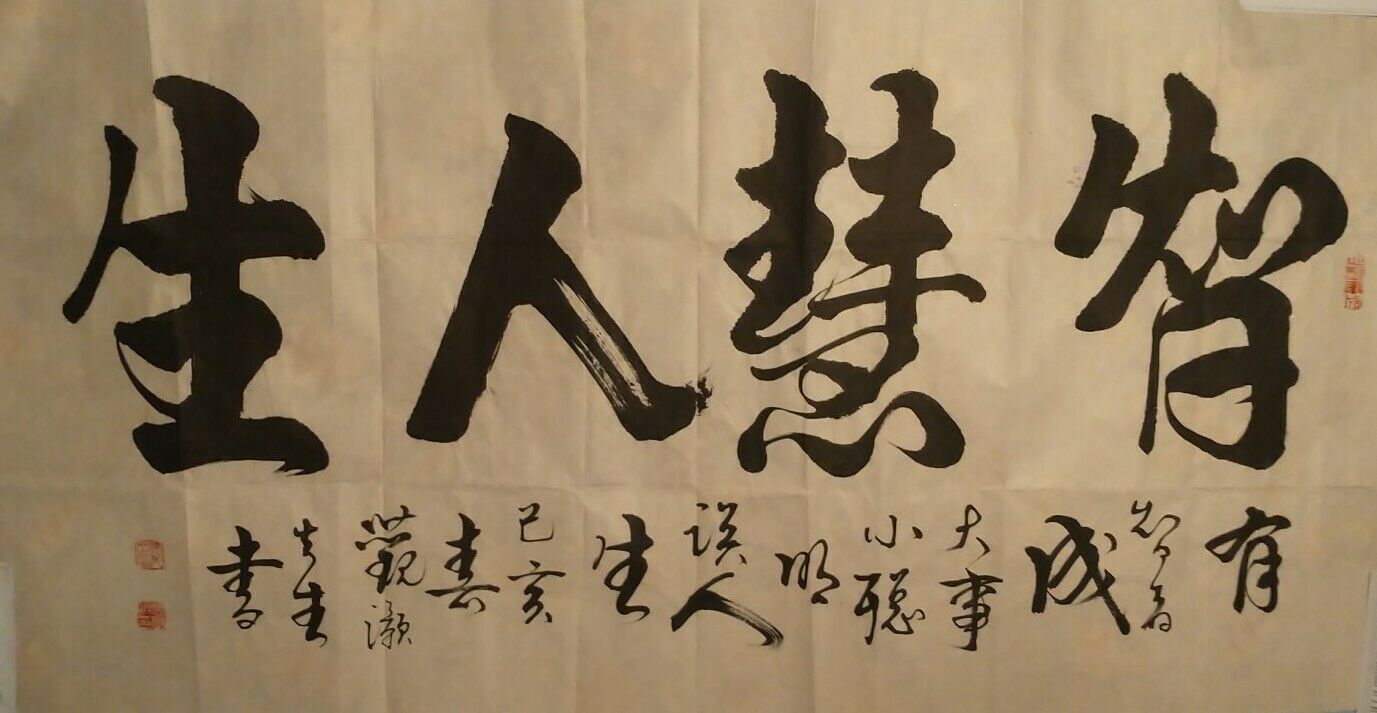 智慧人生
有
智者
成
大事
小聪
明
误人
生
己亥
春
先生
書